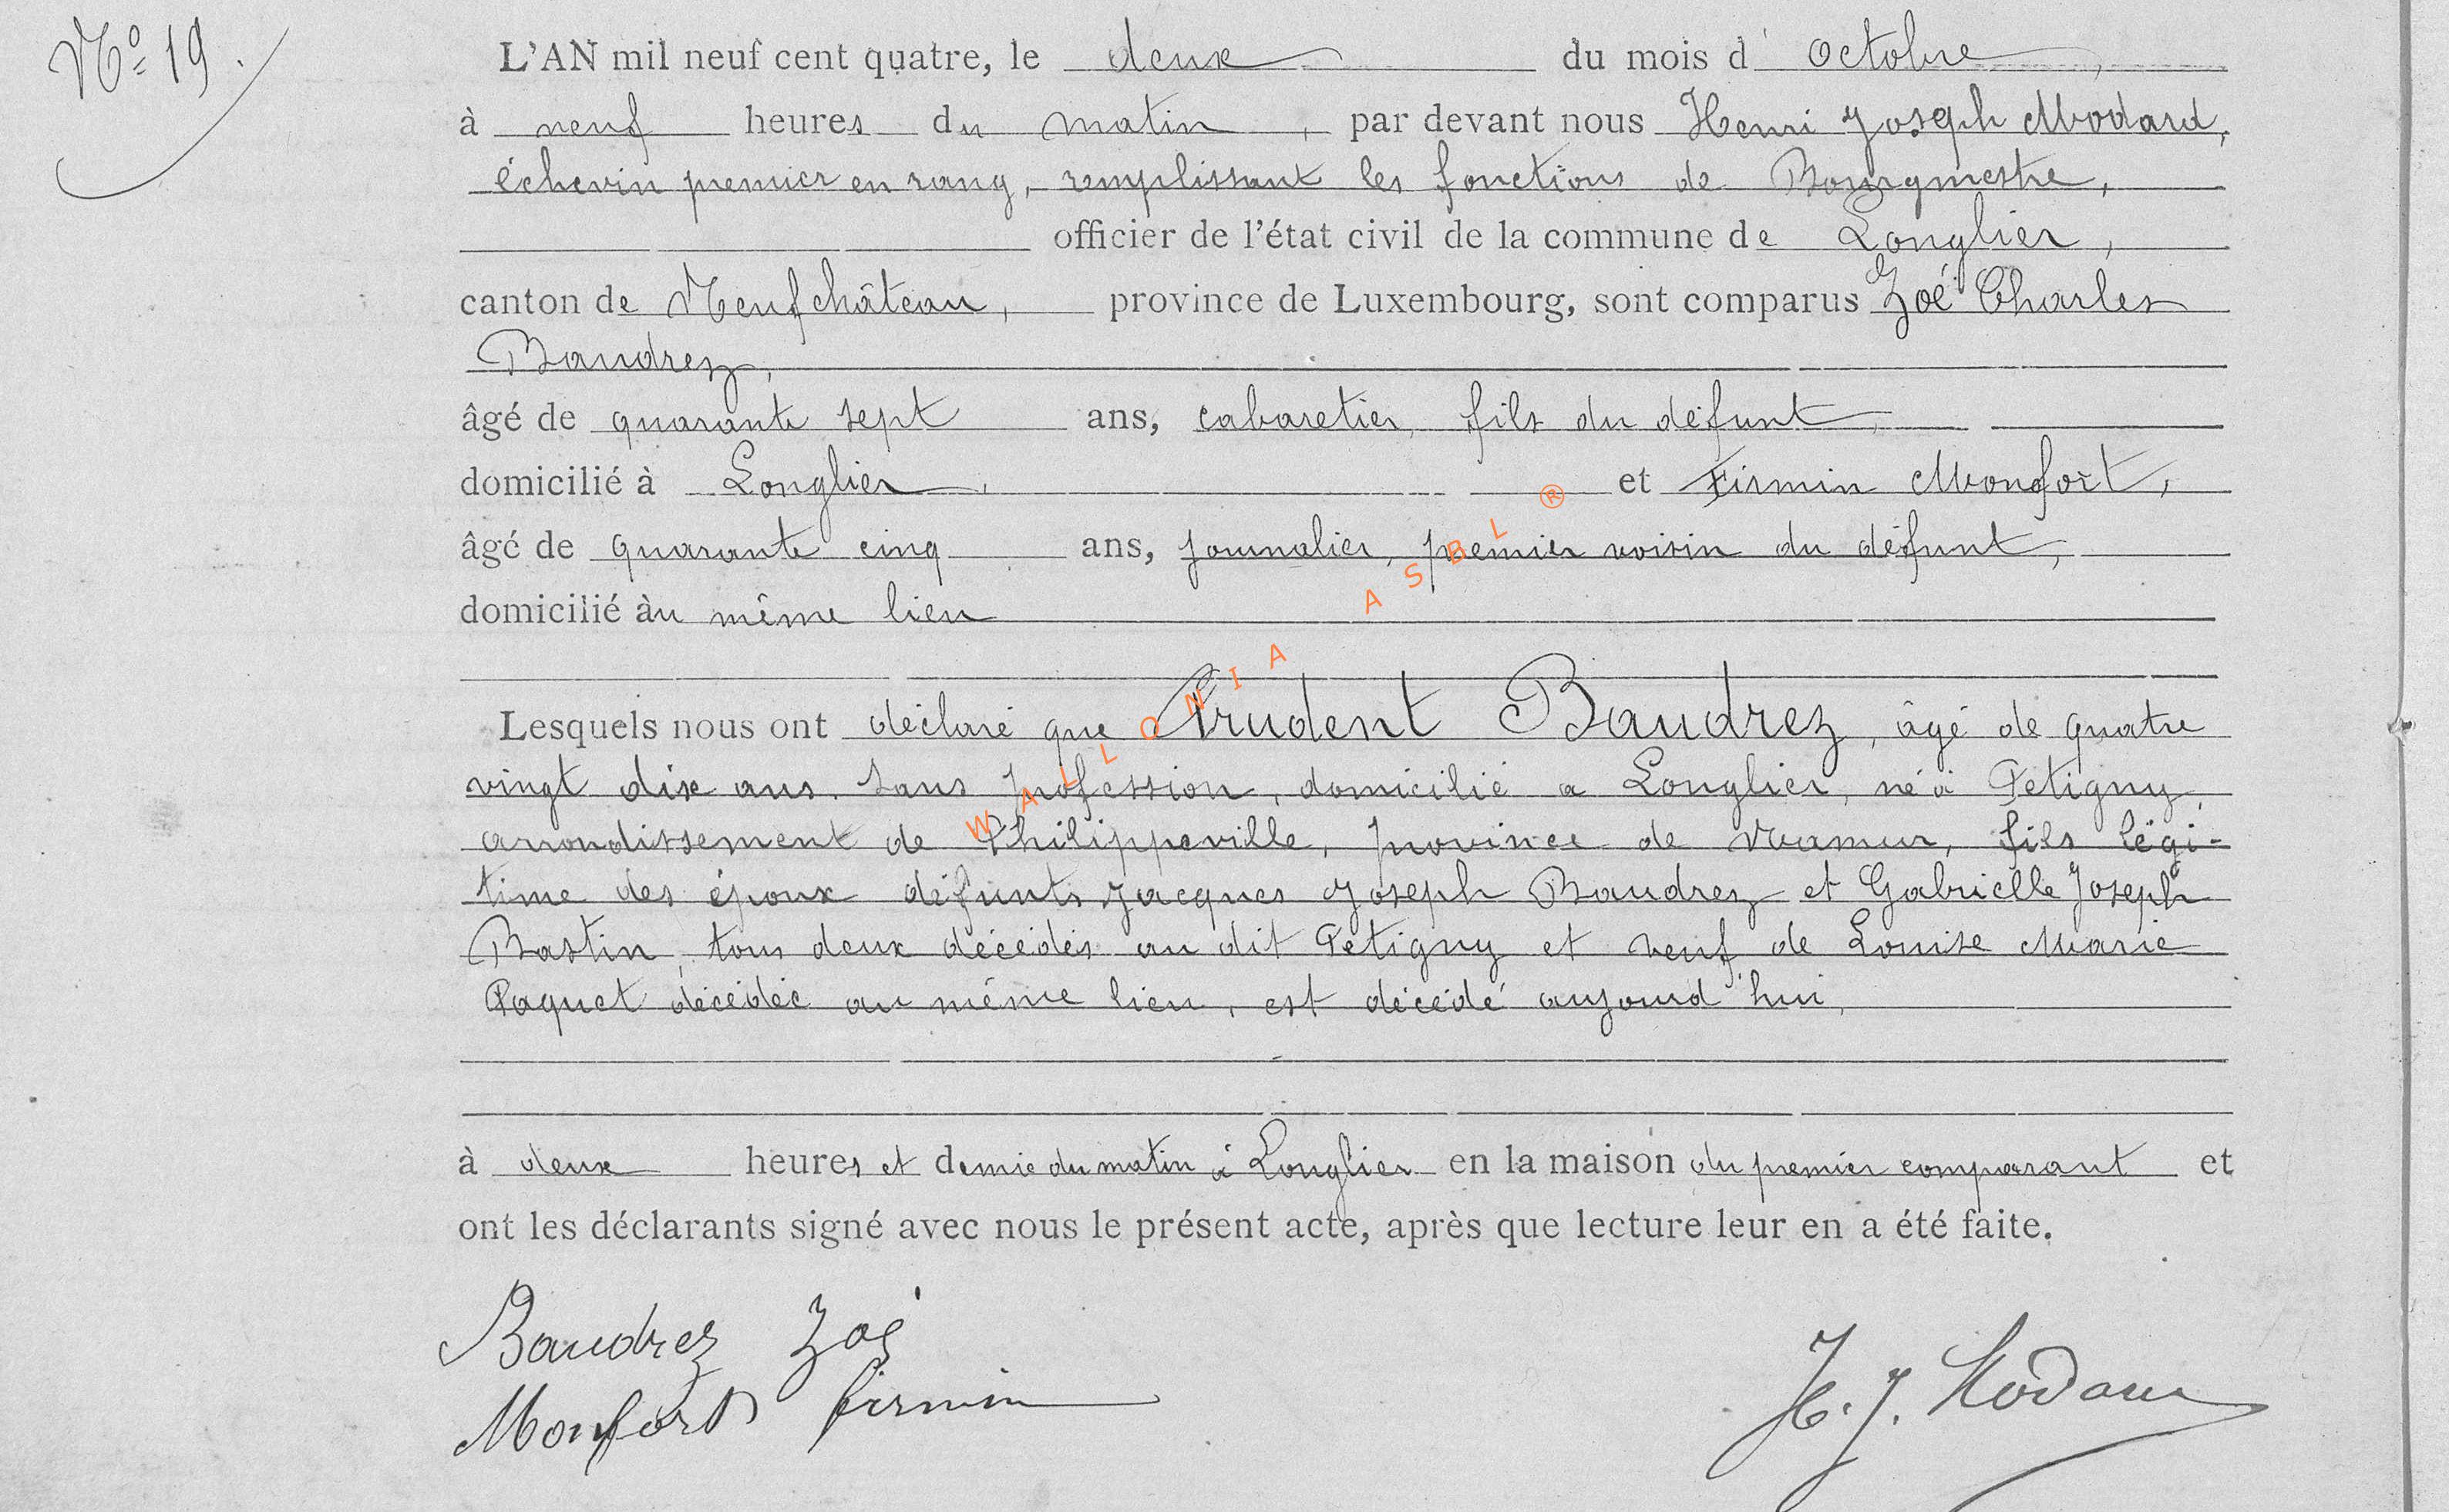 No 19.
L'AN mil neuf cent quatre, le deux du mois d'Octobre,
à neuf heures du matin, par devant nous Henri Joseph Modard,
échevin premier en rang, remplissant les fonctions de Bourgmestre,
officier de l'état civil de la commune de Longlier,
canton de Neufchâteau, province de Luxembourg, sont comparus Zoé Charles
Baudrez,
âgé de quarante sept ans, cabaretier, fils du défunt,
domicilié à Longlier, et Firmin Monfort,
âgé de quarante cinq ans, journalier, premier voisin du défunt,
domicilié àu même lieu
Lesquels nous ont déclaré que Prudent Baudrez, âgé de quatre
vingt dix ans, sans profession, domicilié a Longlier, né à Petigny
arrondissement de Philippeville, province de Namur, fils légi-
time des époux défunts Jacques Joseph Baudrez et Gabrielle Joseph
Bastin, tous deux décédés au dit Petigny et veuf de Louise Marie
Paquet décédée au même lieu, est décédé aujourd'hui,
à deux heures et demie du matin à Longlier en la maison du premier comparant et
ont les déclarants signé avec nous le présent acte, après que lecture leur en a été faite.
Baudrez Zoé
Monfort firmin
H. J. Modard
WALLONIA ASBL ®